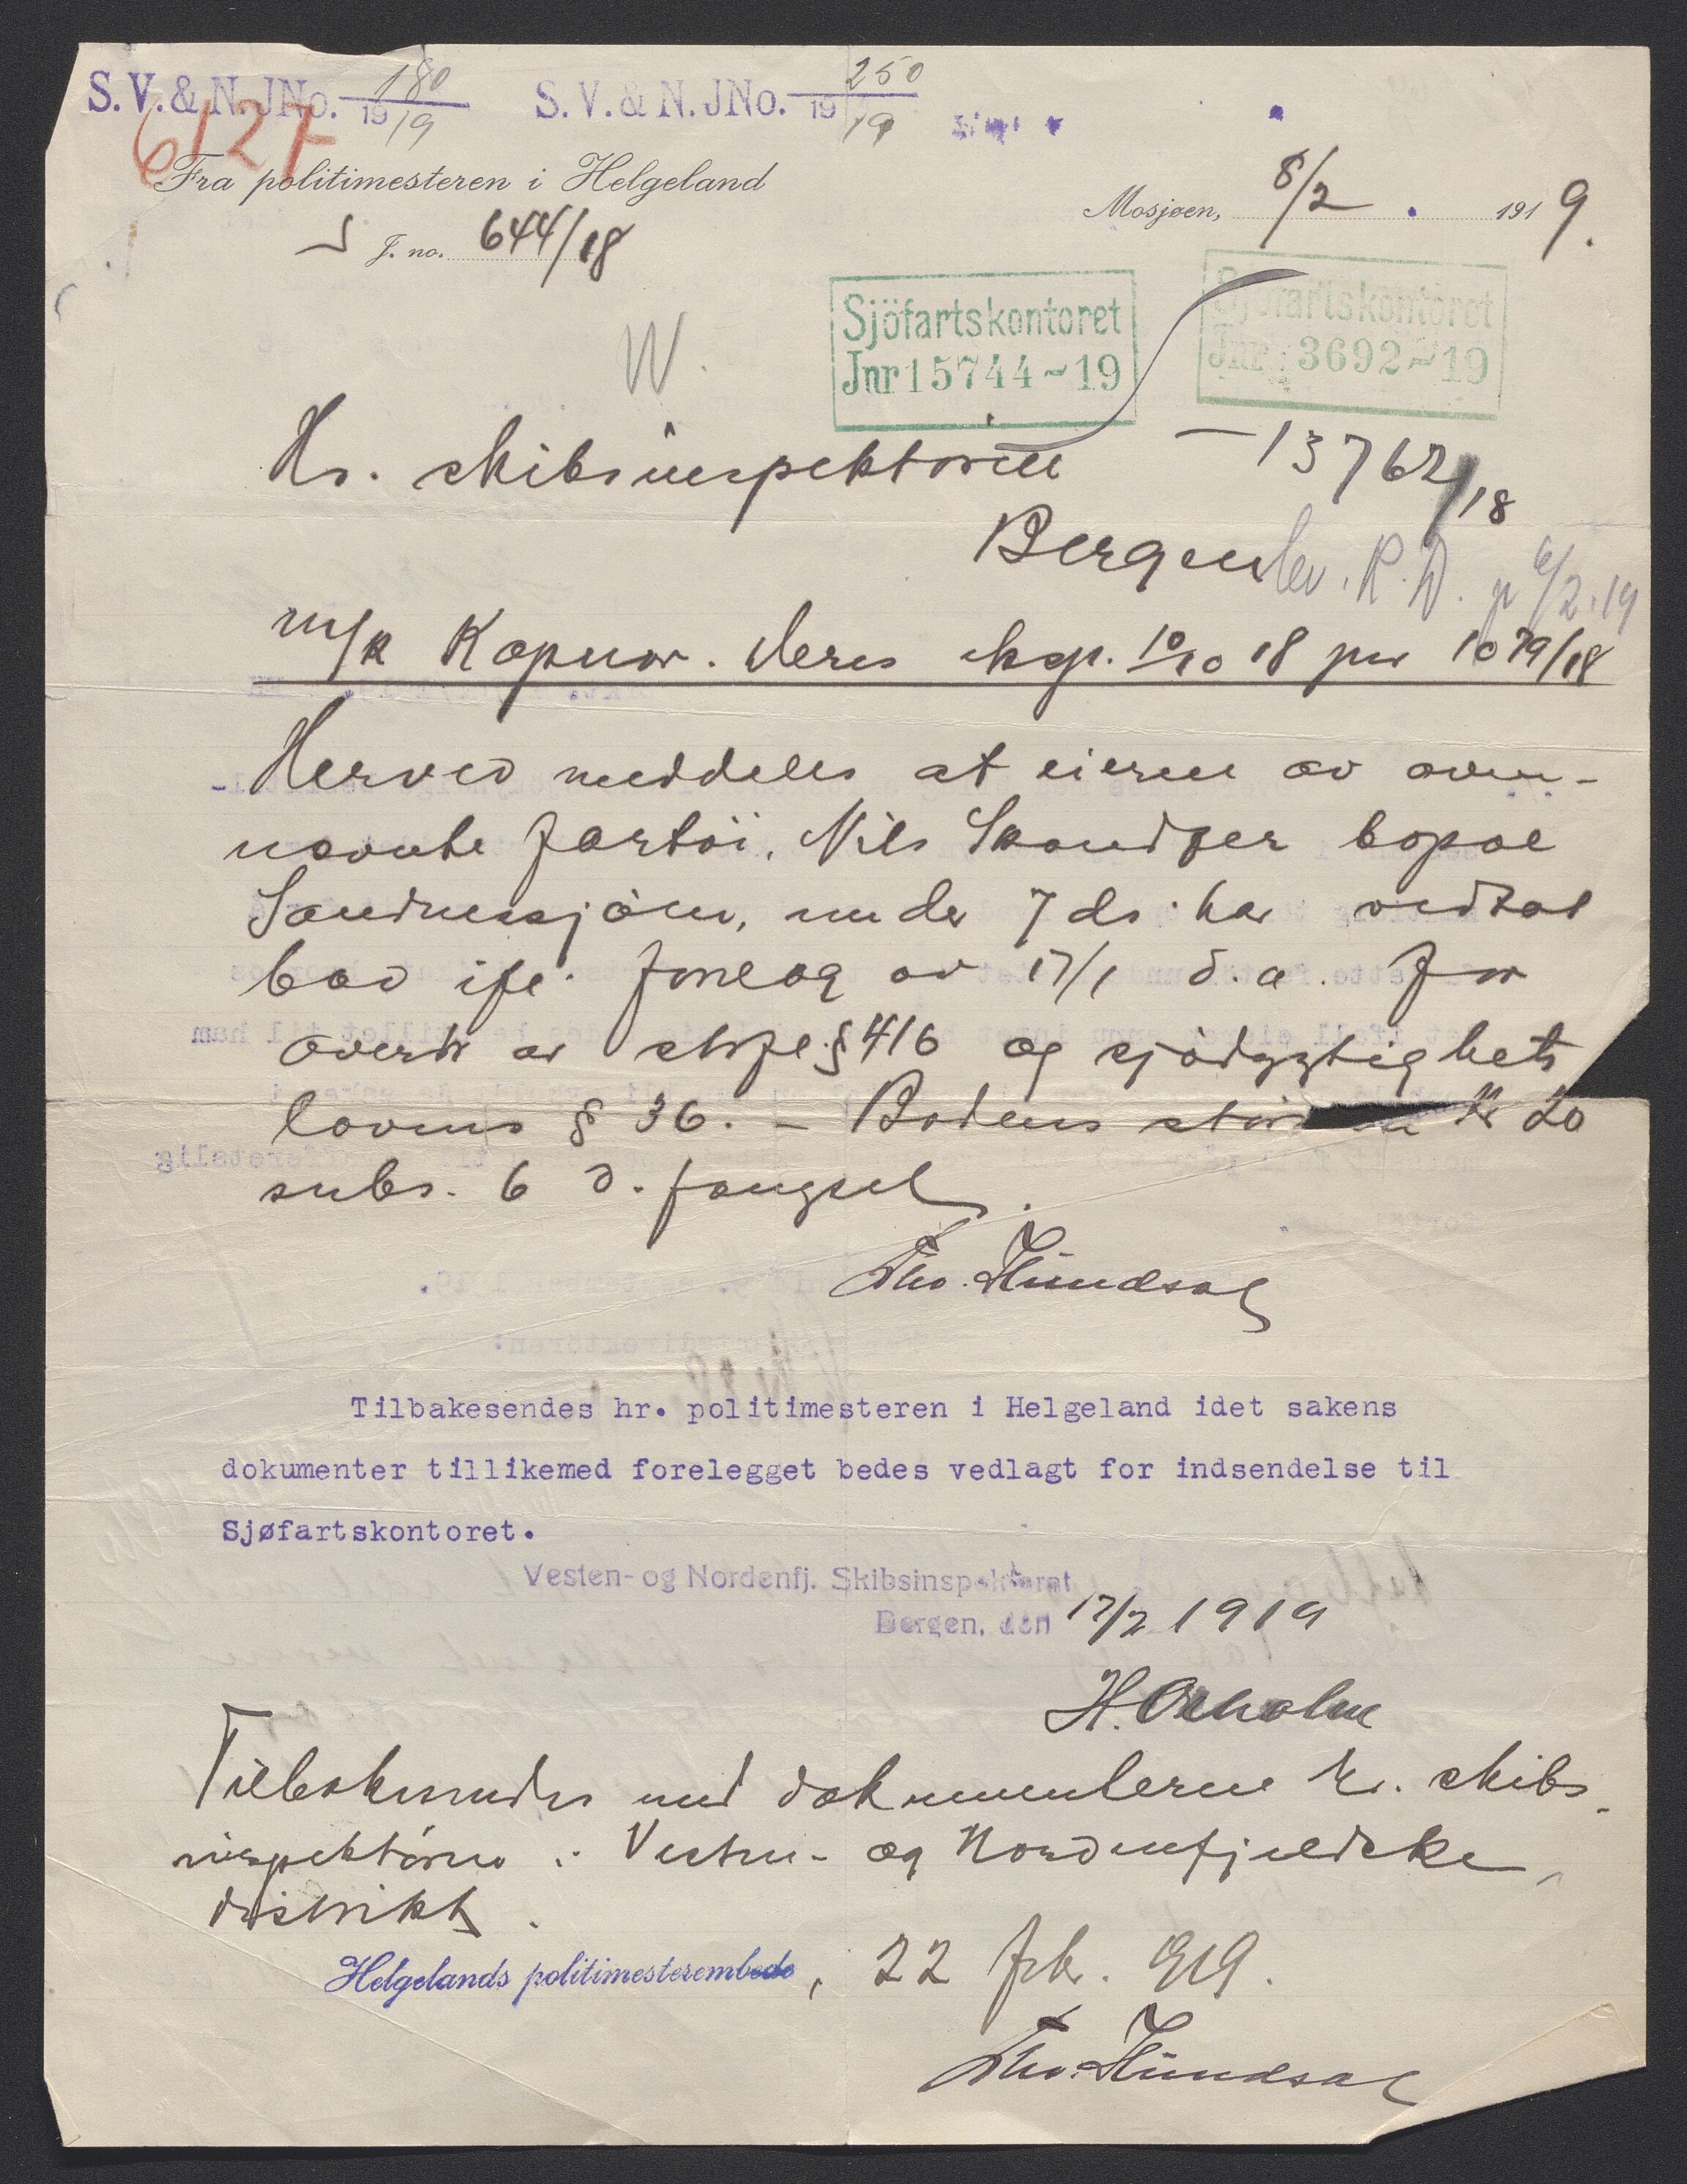 S. V. & N. JNo. 180 / 1919
S. V. & N. JNo. 250 / 1919
6127
Fra politimesteren i Helgeland
Mosjøen, 8/2 1919.
J. no. 644/18
W.
Sjöfartskontoret
Jnr 15744 ~ 19
Sjöfartskontoret
Jnr 3692 ~ 19
Hr. skibsinspektøren
- 13762/18
Bergen
lev. R. D. 6/2.19
m/k Kapnor. Deres eksp. 10/10 18 jnr 1079/18
Herved meddeles at eieren av oven-
nævnte fartöi, Nils Skandfer bopæl
Sandnessjöen, under 7 ds. har vedtat
bod ifl. forelæg av 17/1 d. a. for
overtr av strfl. § 416 og sjödygtighets
lovens § 36. - Bodens störrelse Kr 20
subs. 6 d. fængsel.
Tho. Hundsal
Tilbakesendes hr. politimesteren i Helgeland idet sakens
dokumenter tillikemed forelegget bedes vedlagt for indsendelse til
Sjøfartskontoret.
Vesten- og Nordenfj. Skibsinspektorat
Bergen, den 17/2 1919
H. Oxholm
Tilbakesendes med dokumenterne hr. skibs-
inspektören i Vesten- og Nordenfjeldske
distrikt.
Helgelands politimesterembede, 22 febr. 1919.
Tho. Hundsal